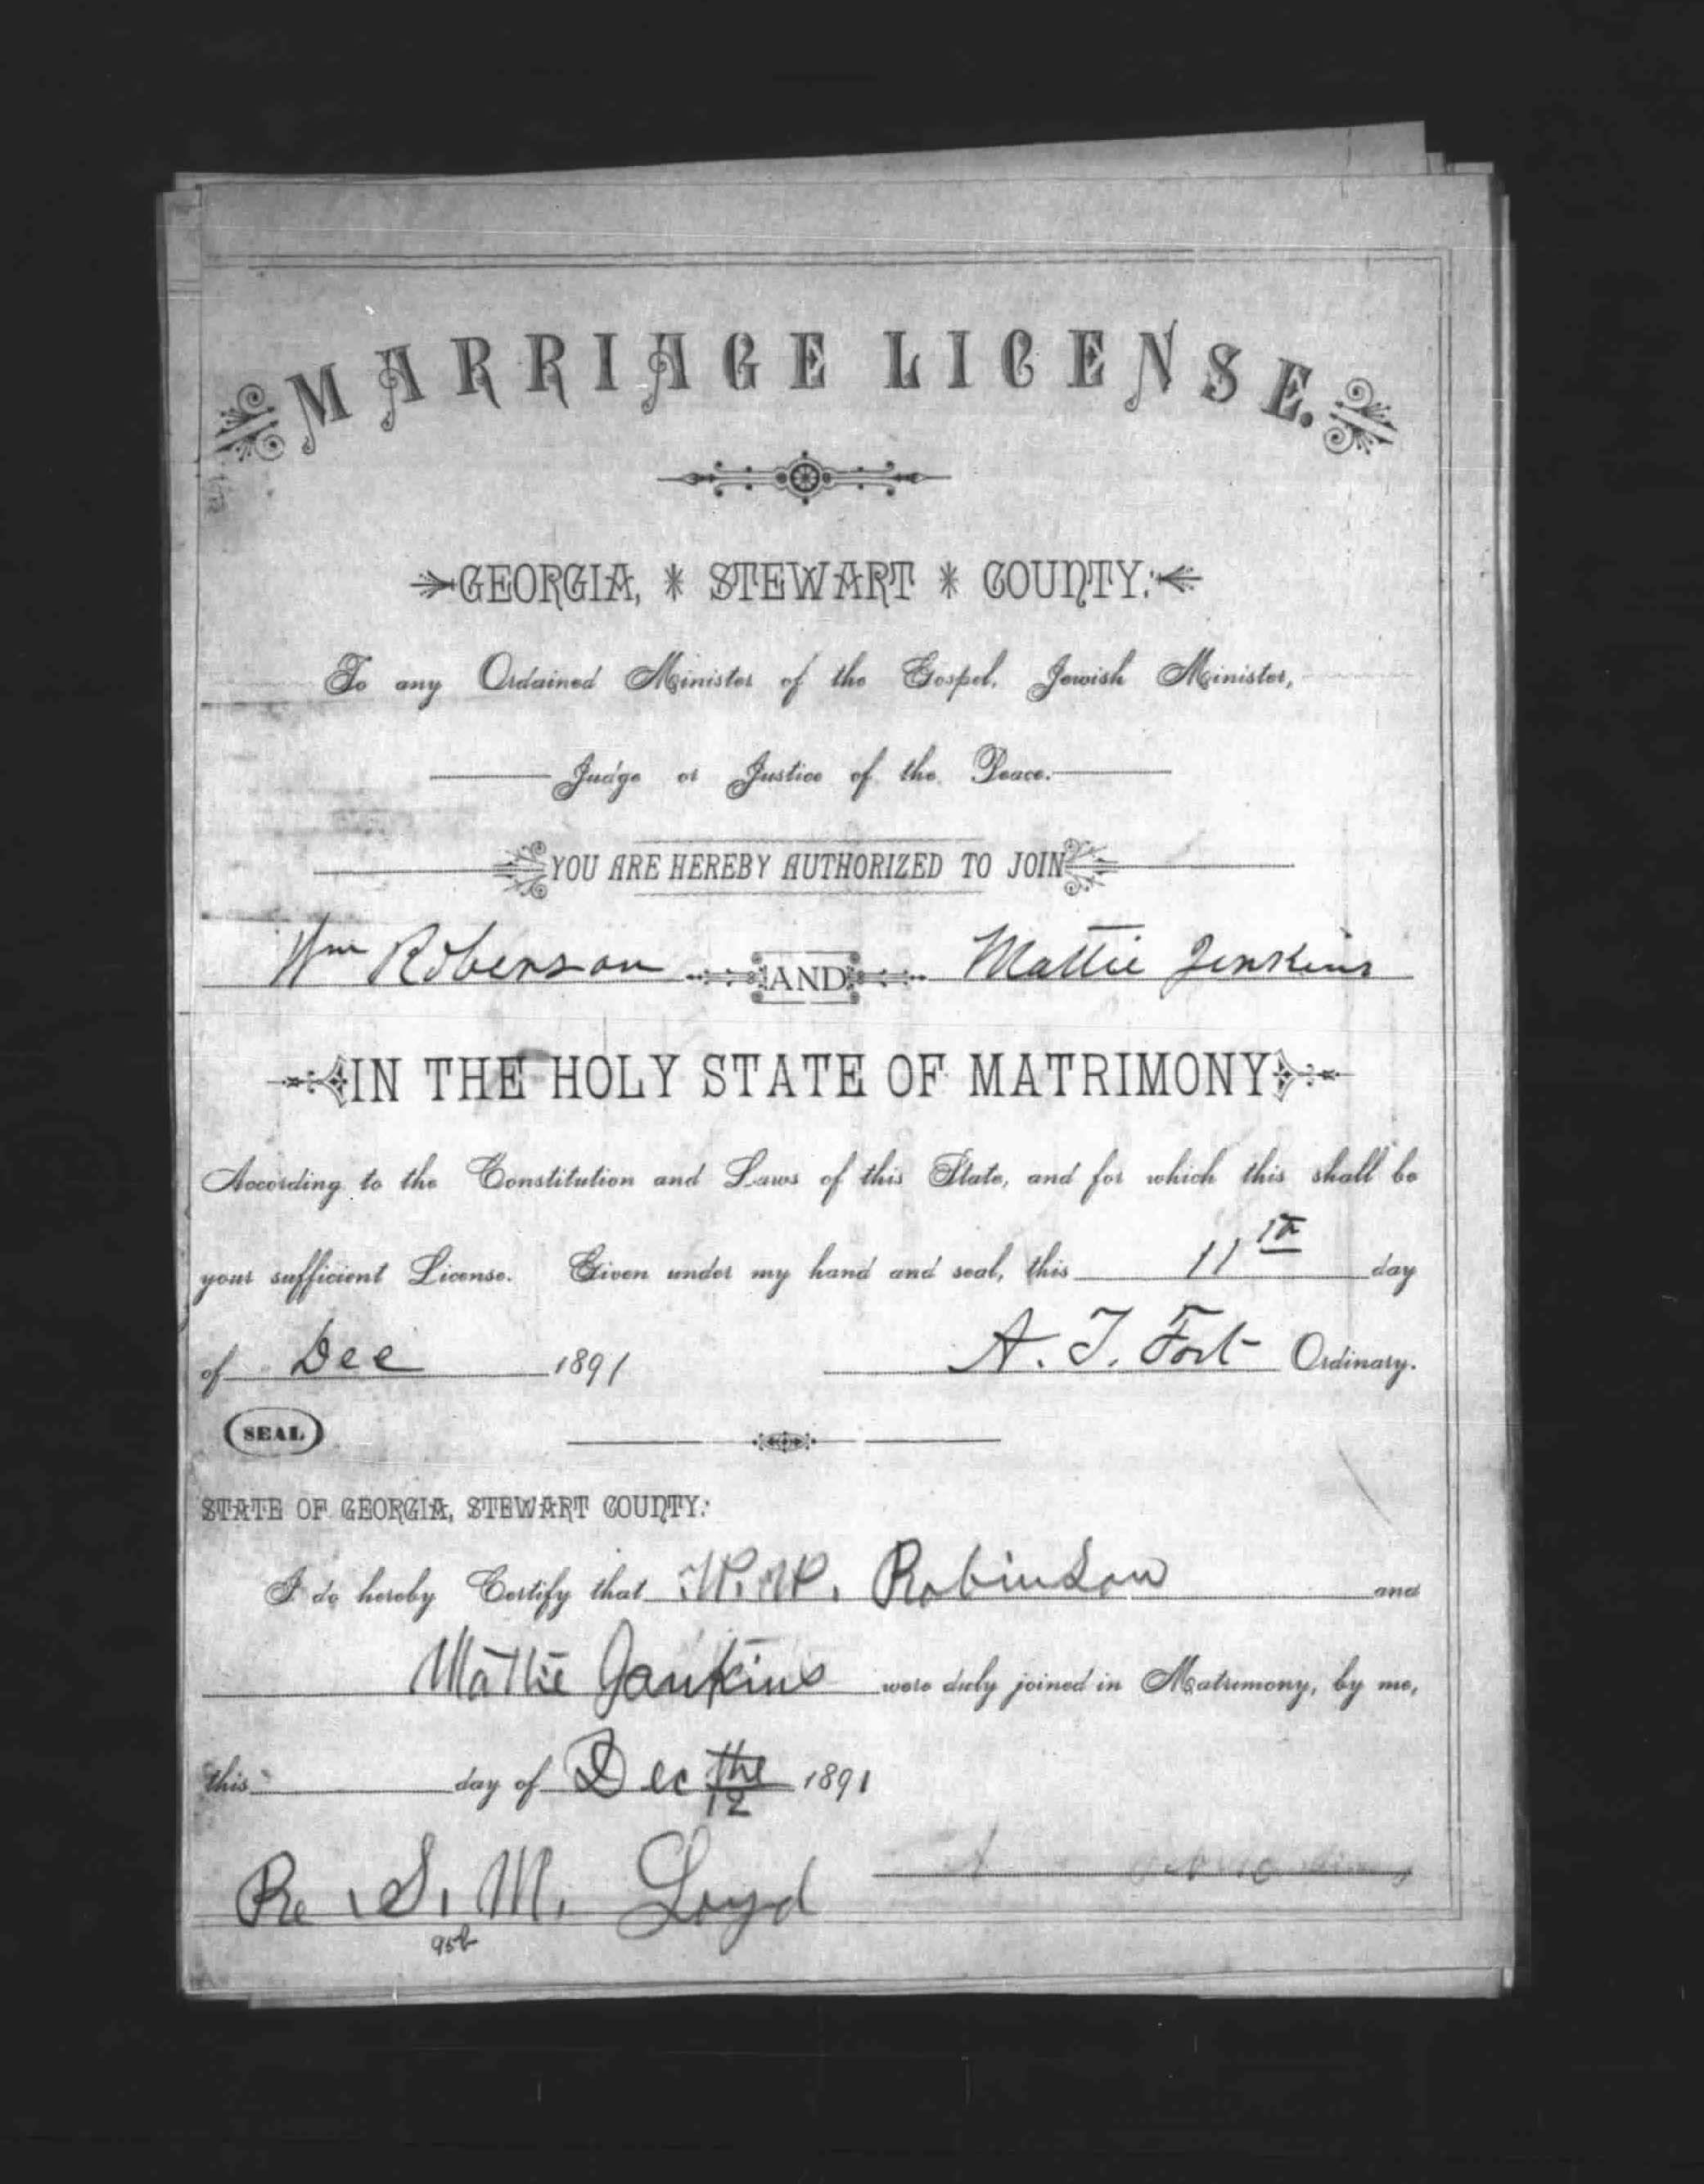 MARRIAGE LICENSE.
GEORGIA, * STEWART * COUNTY:
To any Ordained Minister of the Gospel, Jewish Minister,
Judge or Justice of the Peace.
YOU ARE HEREBY AUTHORIZED TO JOIN
Wm Roberson AND Mattie Jenkins
IN THE HOLY STATE OF MATRIMONY
According to the Constitution and Laws of this State, and for which this shall be
your sufficient License. Given under my hand and seal, this 11th day
of Dec 1891 A. T. Fort Ordinary.
SEAL
STATE OF GEORGIA, STEWART COUNTY:
I do hereby Certify that Robinson and
Mattie Jankins were duly joined in Matrimony, by me,
this day of Dec the 12 1891
Re . S. M. Loyd